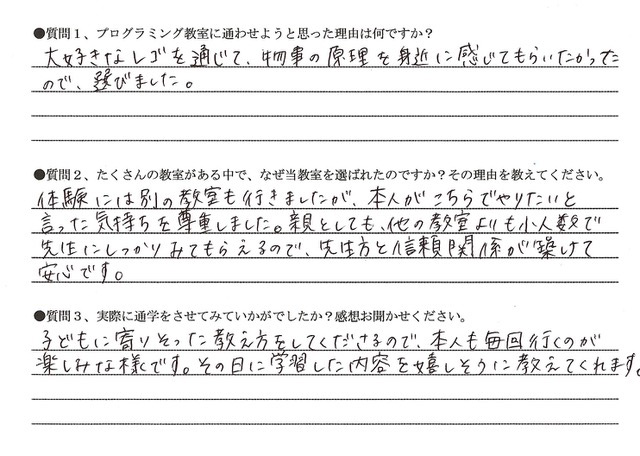 ●質問１、プログラミング教室に通わせようと思った理由は何ですか？
大好きなレゴを通じて、物事の原理を身近に感じてもらいたかった
ので、選びました。
●質問２、たくさんの教室がある中で、なぜ当教室を選ばれたのですか？その理由を教えてください。
体験には別の教室も行きましたが、本人がこちらでやりたいと
言った気持ちを尊重しました。親としても、他の教室よりも小人数で
先生にしっかりみてもらえるので、先生方と信頼関係が築けて
安心です。
●質問３、実際に通学をさせてみていかがでしたか？感想お聞かせください。
子どもに寄りそった教え方をしてくださるので、本人も毎回行くのが
楽しみな様です。その日に学習した内容を嬉しそうに教えてくれます。